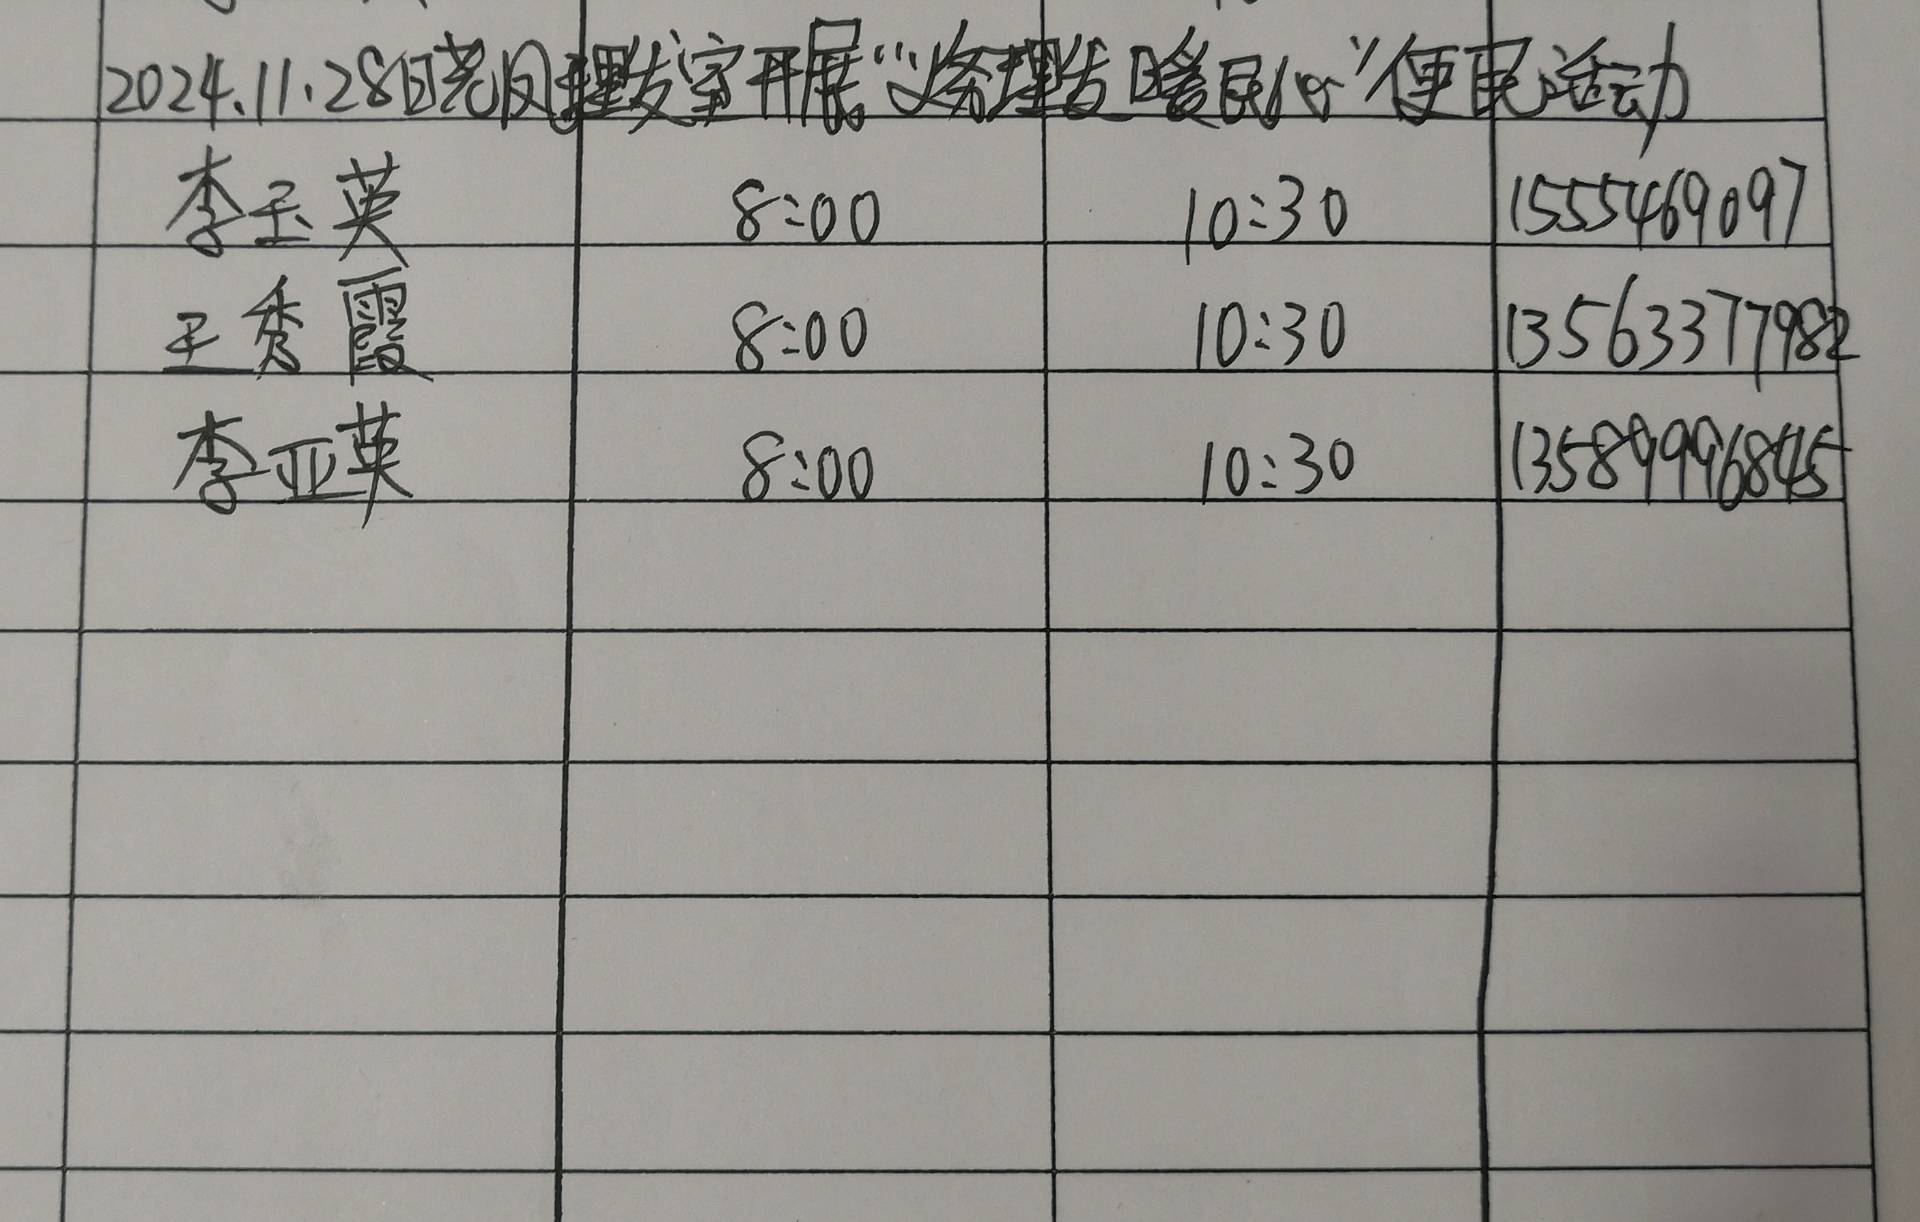 2024.11.28日晓风理发室开展“义务理发 暖民心”便民活动
李玉英 8:00 10:30 1555469097
王秀霞 8:00 10:30 13563377982
李亚英 8:00 10:30 13589996845